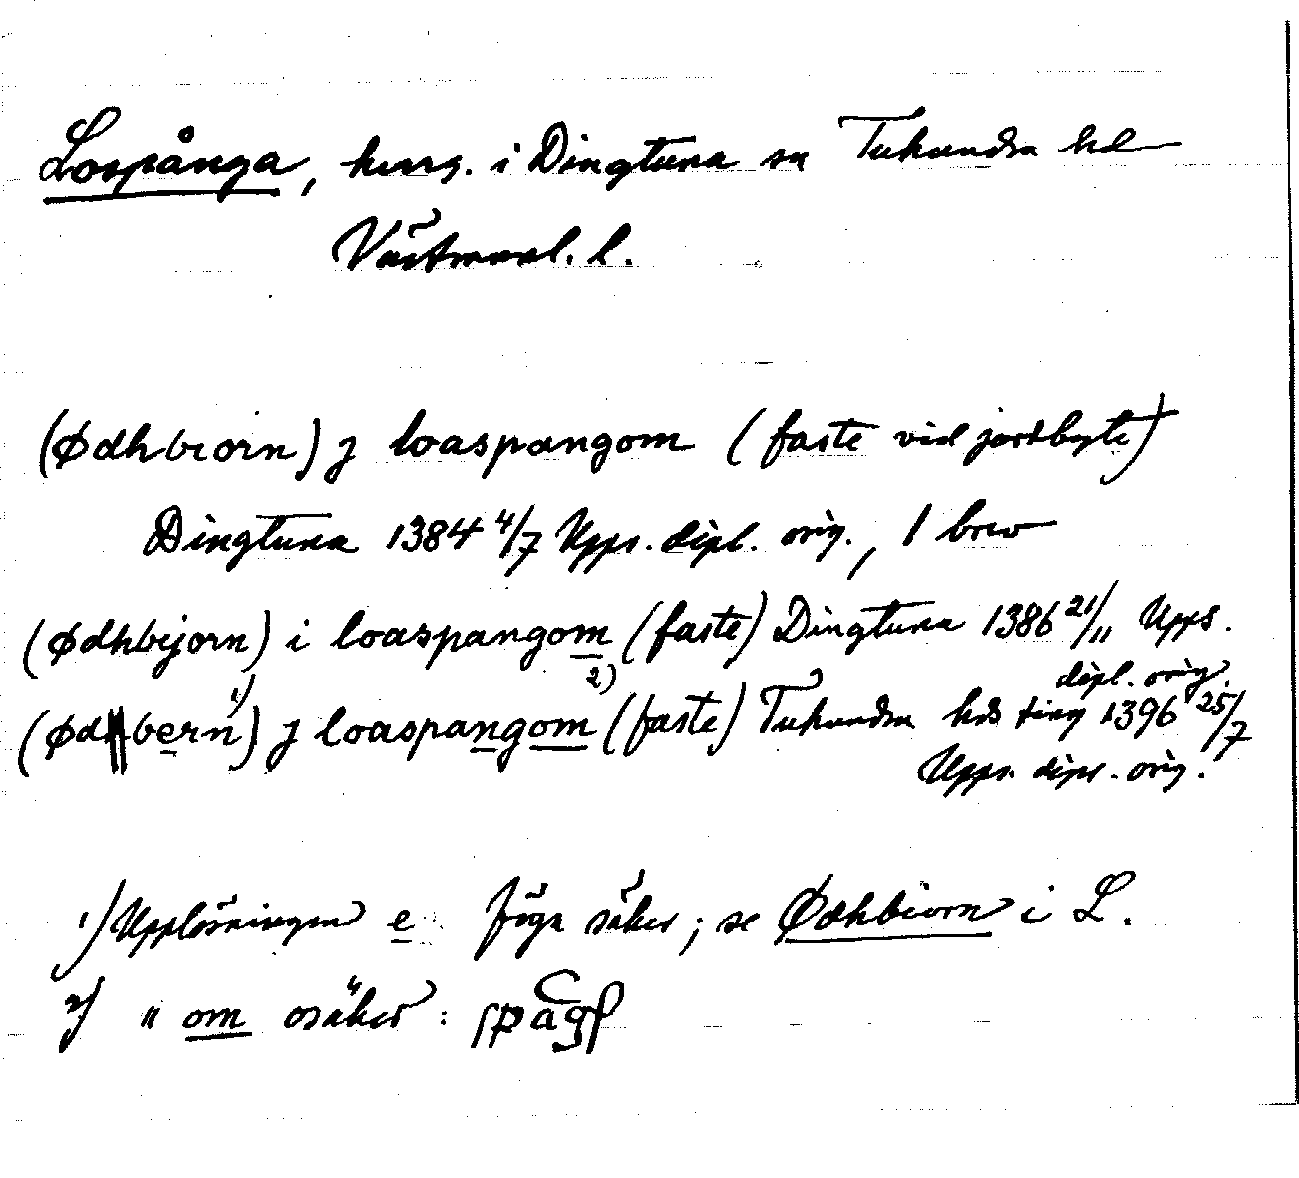 Lospånga, herrg. i Dingtuna sn Tuhundra hd
Västmanl. l.
(Ødhbiorn) j loaspangom (faste vid jordbyte)
Dingtuna 1384 4/7 Upps. dipl. orig., 1 brev
(Ødhbijorn) i loaspangom 2) (faste) Dingtuna 1386 21/11 Upps.
dipl. orig.
(Ødhbern 1)) j loaspangom (faste) Tuhundra hds ting 1396 25/7
Upps. dipl. orig.
1) Upplösningen e föga säker; se Ødhbiorn i L.
2) " om osäker: spag